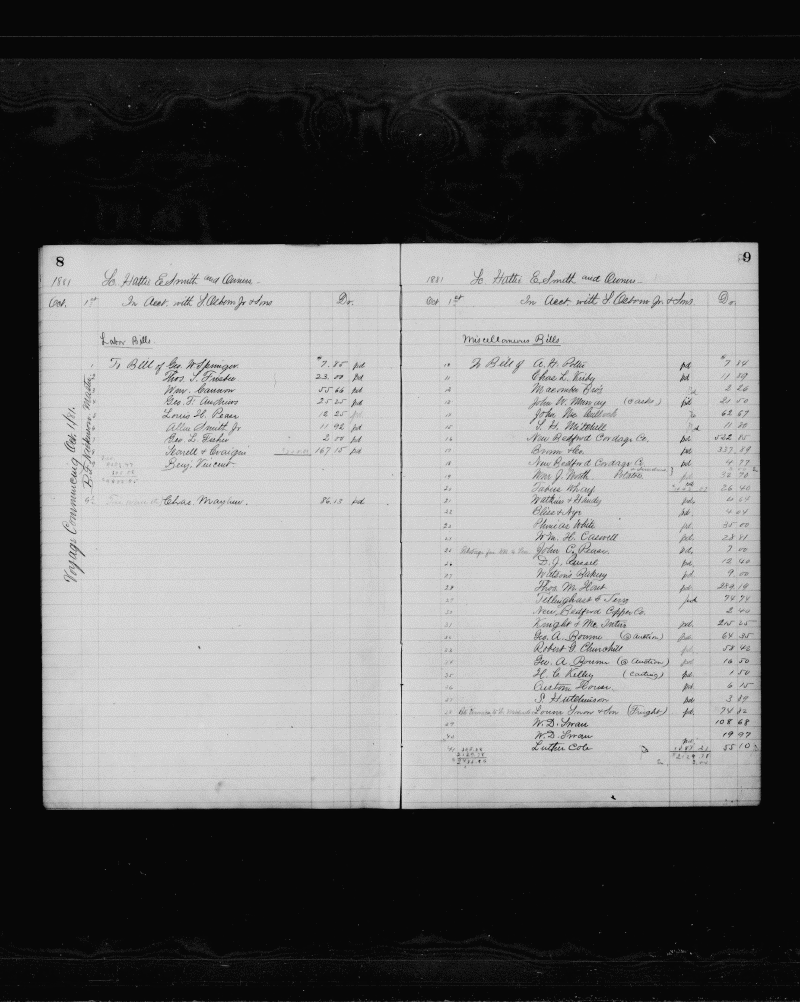 8
1881 To Hattie E Smith and Owners
Oct. 1st In Acct with S. Osborn Jr & Sons Dr.
Labor Bills
To Bill of Geo. W Springer $7.85 pd
Thos. S. Fisher 23.00 pd
Wm. Cannon 55 66 pd
Geo. F. Andrews 25 25 pd
Louis H. Pease 12 25 pd
Allen Smith Jr 11 92 pd
Geo. L. Fisher 2 00 pd
& Craigin 167 15 pd
Benj. Vincent
Chas. Mayhew 86.13 pd
Voyage Commencing Oct 1/81.
Master
9
1881 To Hattie E Smith and Owners
Oct 1st In Acct with S. Osborn Jr. & Sons Dr.
Miscellaneous Bills
10 To Bill of A. H. Potter pd $7 34
11 Chas L. Kirby pd
12 Macomber Bro's pd 2 26
13 John W. Murray (Casks) pd 21 50
John Mc Cullock 62 67
15 S. H. Mitchell pd 11 20
16 New Bedford Cordage Co. pd 522 15
17 & Co. pd
18 New Bedford Cordage Co pd 4 77
19 Potatoes pd
20 Taber Wharf pd 26 40
21 Watkins & pd
22 Bliss & Nye pd 4 04
23 Phineas White pd 35 00
24 Wm. H. Caswell pd 28 81
25 John C. Pease pd 7 00
26 D. J. Russel pd 12 40
27 Watson's Bakery pd 9 00
28 Thos. M. Hart pd 289 19
29 Tillinghast & Terry pd 74 74
30 New Bedford Copper Co. 2 40
31 Knight & Mc Intire pd 215 65
32 Geo. A. Bourne (@ auction) pd 64 35
33 Robert G. Churchill pd 58 46
34 Geo. A. Bourne (@ Auction) pd 16 50
35 H. C. Kelley (Carting) pd 1 50
36 Custom House pd 6 15
37 P. Hutchinson pd 3 89
38 Snow & Son (Freight) pd
39 W. D. Swan 108 68
40 W. D. Swan 19 97
41 Luther Cole pd 55 10